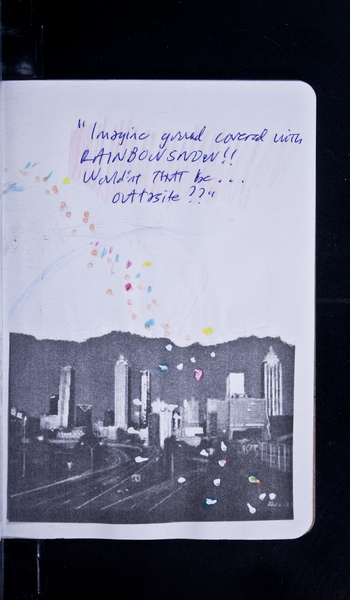 "Imagine ground covered with
RAINBOWSNOW!!
Wouldn't THAT be...
outtasite??"